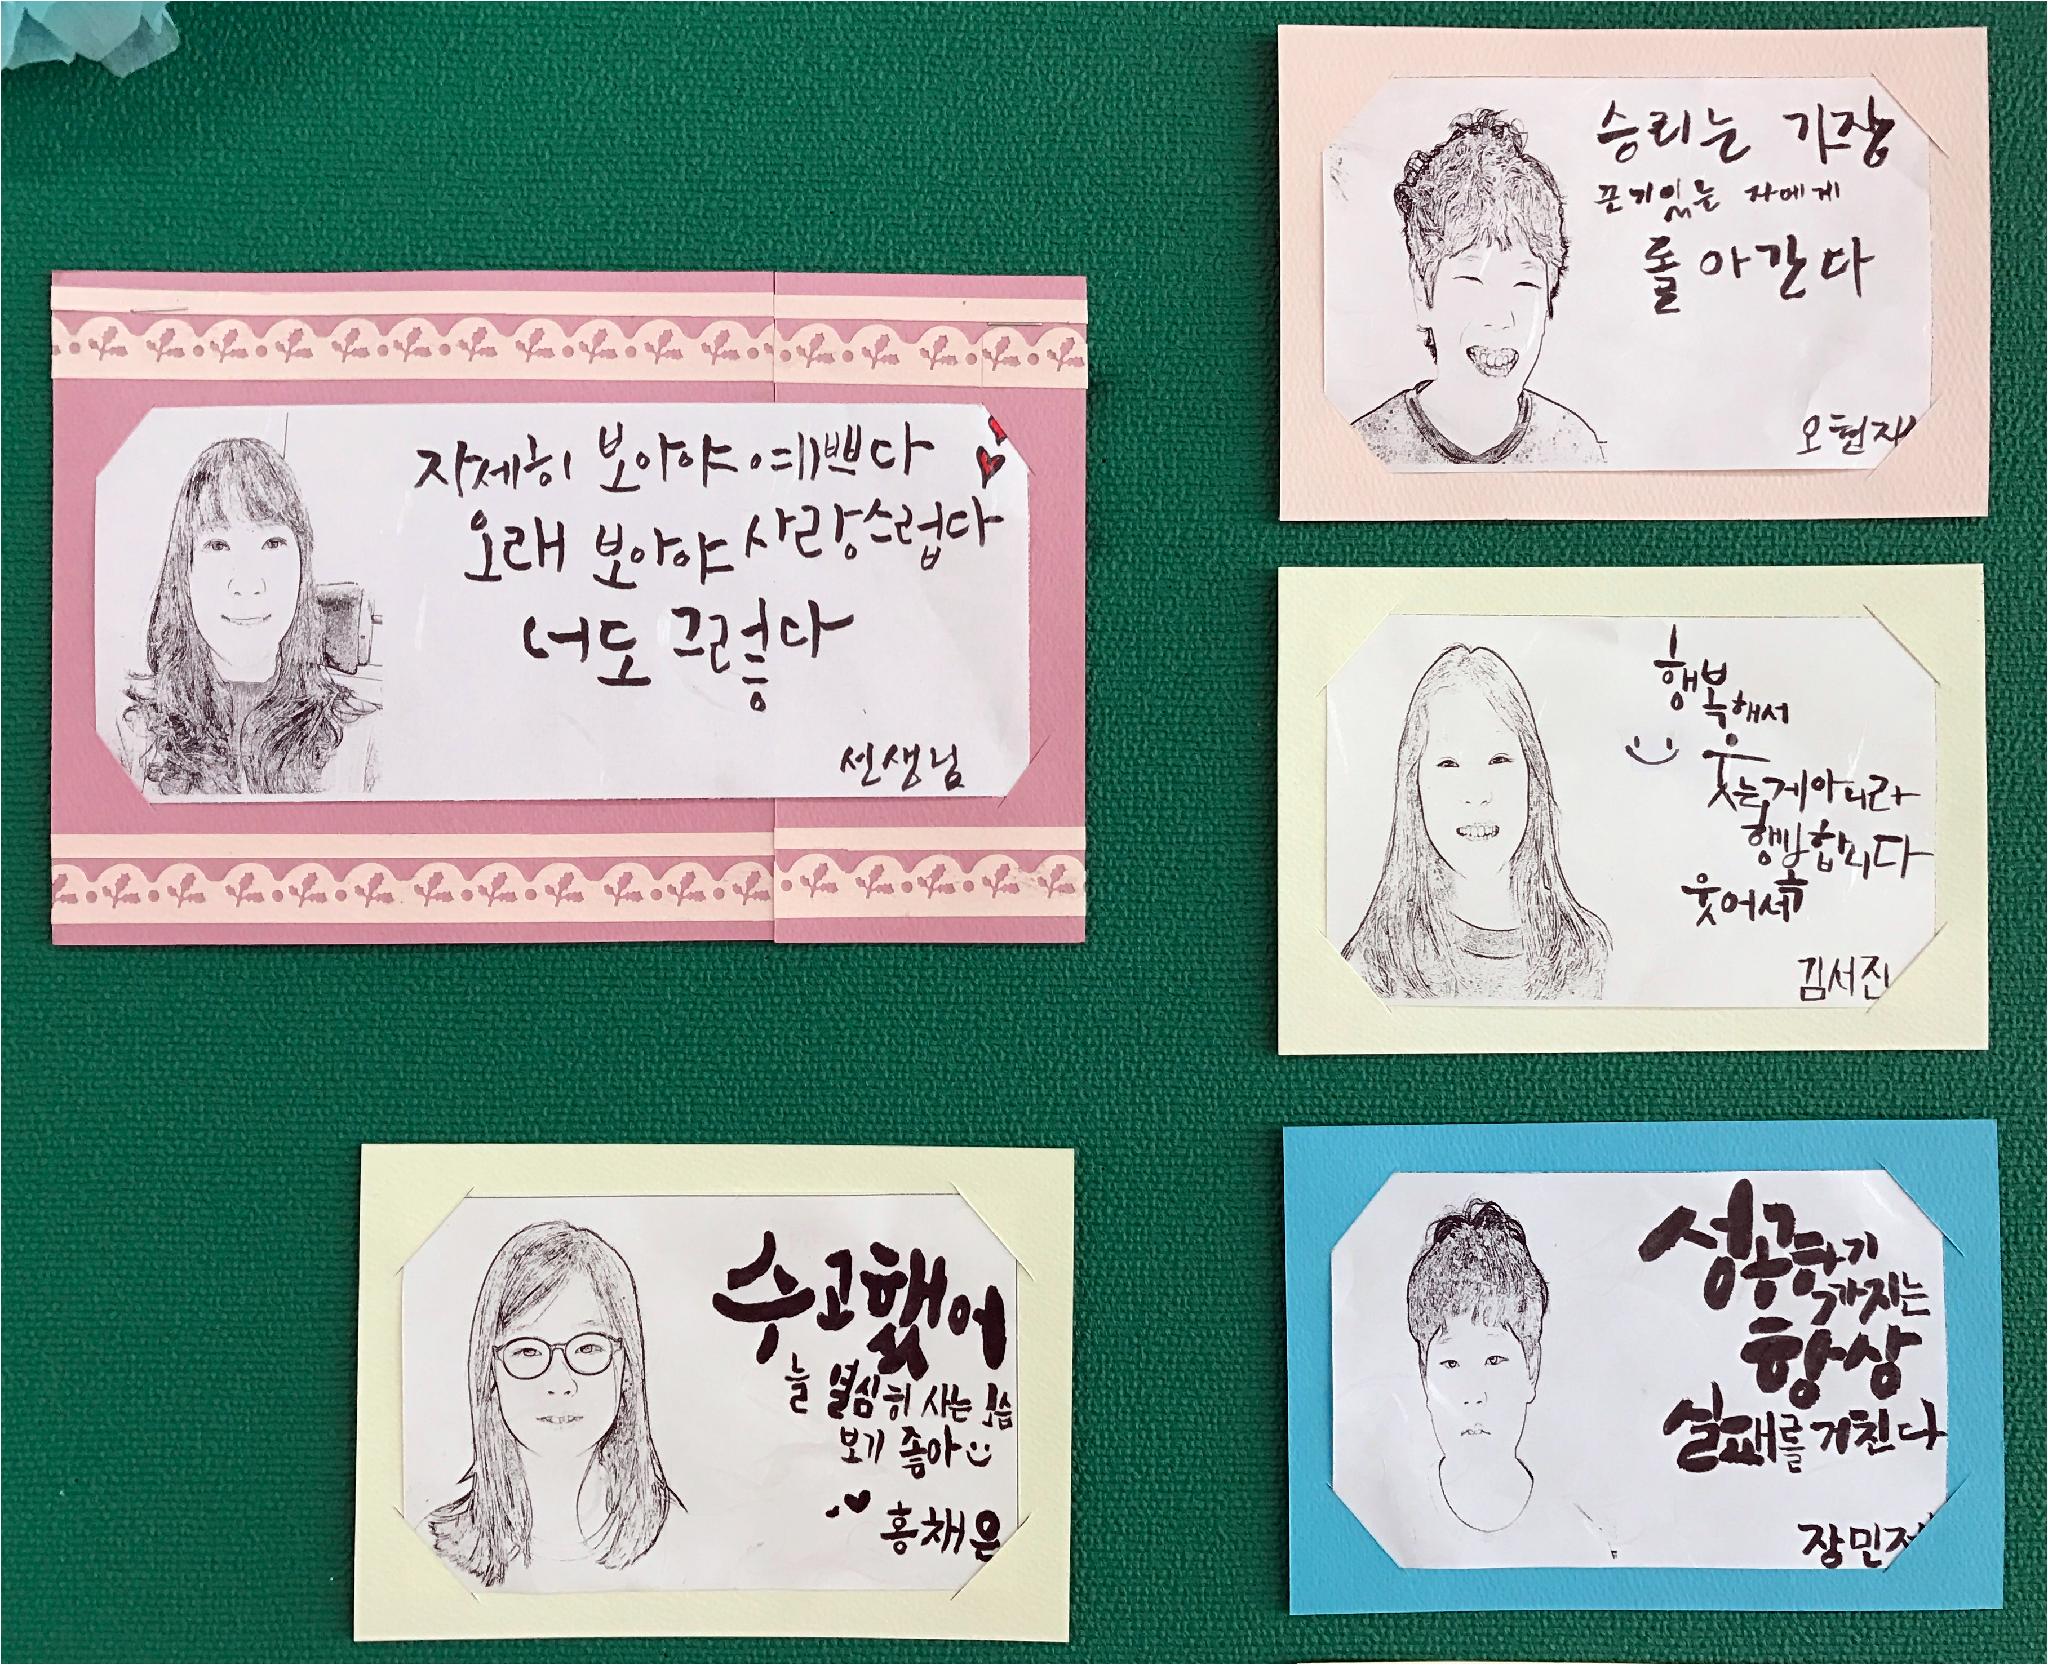 자세히 보아야 예쁘다
오래 보아야 사랑스럽다
너도 그렇다
선생님
승리는 가장
끈기있는 자에게
돌아간다
오현재
행복해서
웃는게아니라
행복합니다
웃어서
김서진
수고했어
늘 열심히 사는 모습
보기 좋아
홍채은
성공하기
까지는
항상
실패를 거친다
장민